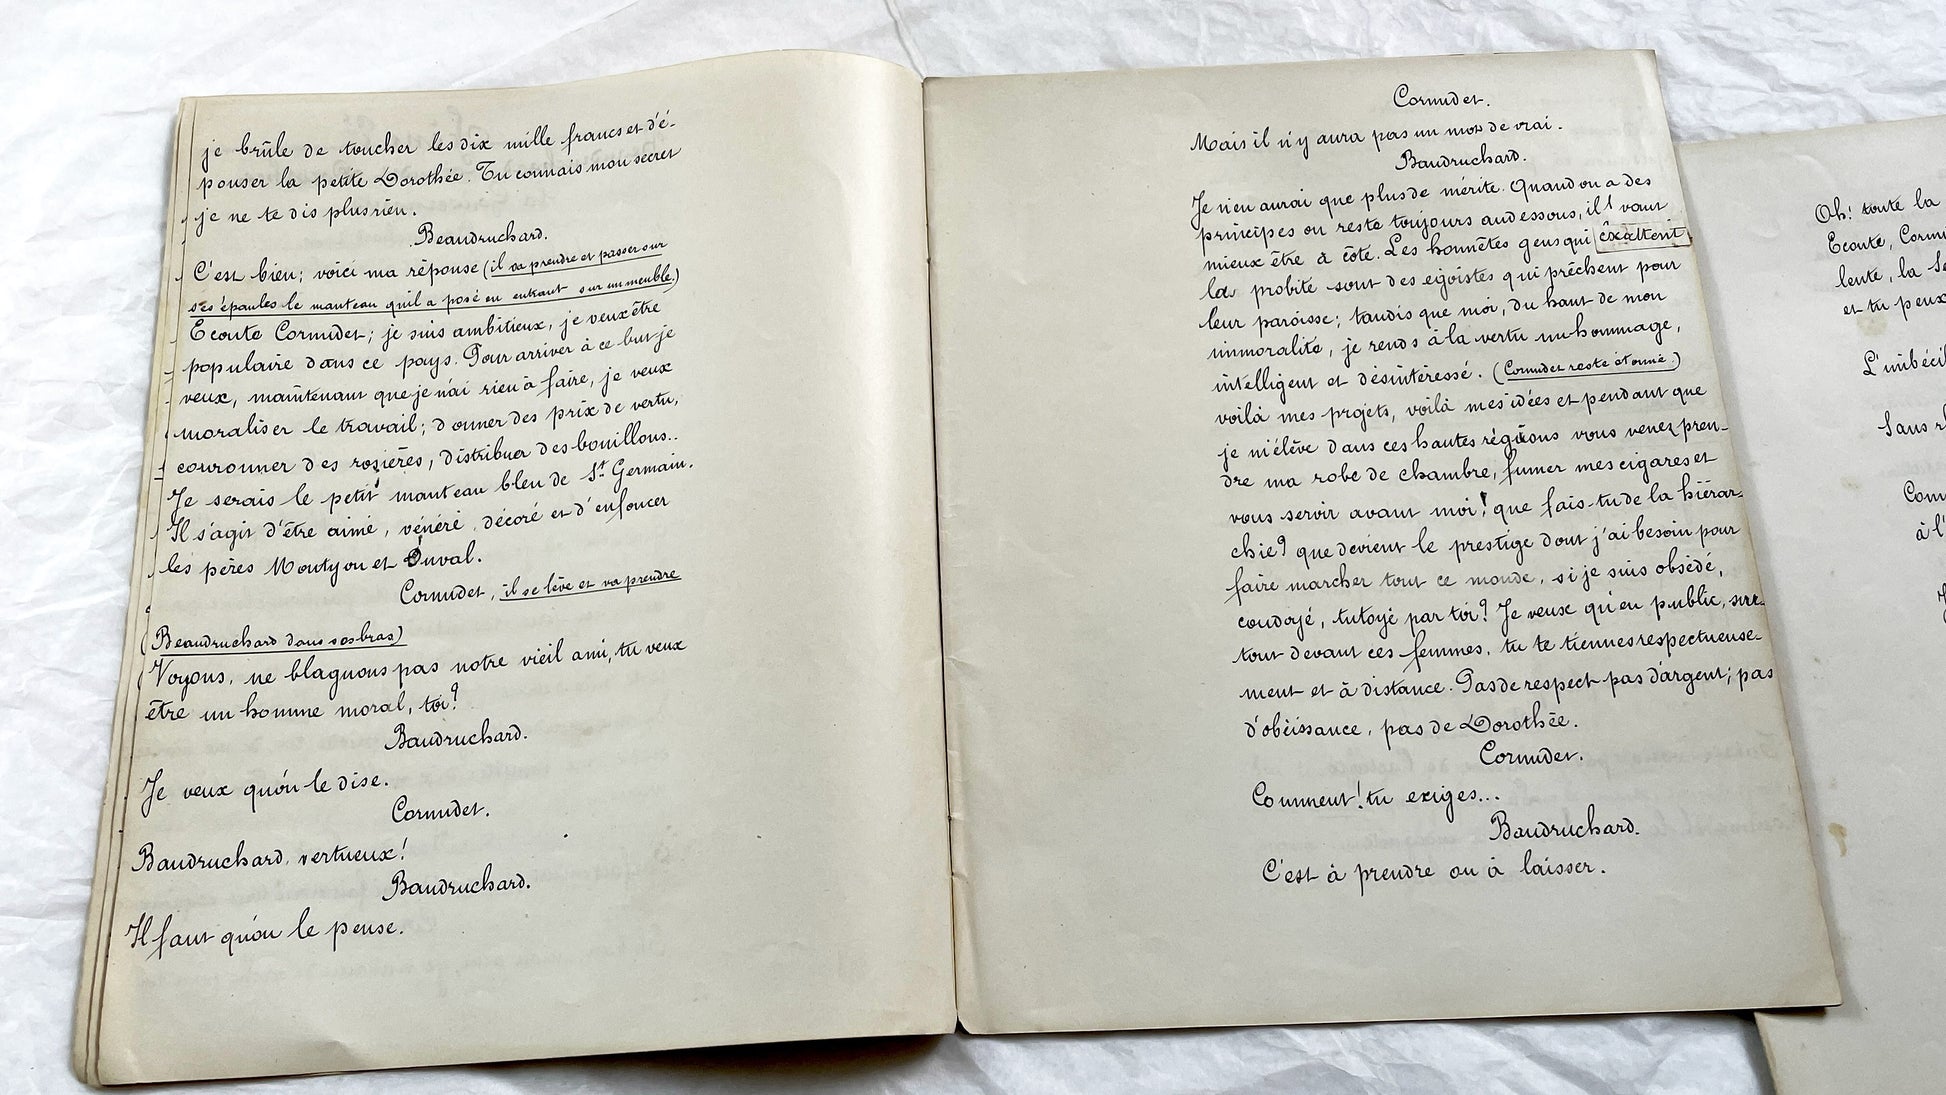 je brûle de toucher les dix mille francs et d'é-
pouser la petite Dorothée. Tu connais mon secret
je ne te dis plus rien.
Beaudruchard.
C'est bien; voici ma réponse (il va prendre et passer sur
ses épaules le manteau qu'il a posé en entrant sur un meuble)
Ecoute Cornudet; je suis ambitieux, je veux être
populaire dans ce pays. Pour arriver à ce but je
veux, maintenant que je n'ai rien à faire, je veux
moraliser le travail; donner des prix de vertu,
couronner des rosières, distribuer des bouillons..
Je serais le petit manteau bleu de St Germain.
Il s'agit d'être aimé, vénéré, décoré et d'enfoncer
les pères Montyon et Duval.
Cornudet, il se lève et va prendre
(Beaudruchard dans ses bras)
Voyons, ne blaguons pas notre vieil ami, tu veux
être un homme moral, toi?
Baudruchard.
Je veux qu'on le dise.
Cornudet.
Baudruchard, vertueux!
Baudruchard.
Il faut qu'on le pense.
Cornudet.
Mais il n'y aura pas un mot de vrai.
Baudruchard.
Je n'en aurai que plus de mérite. Quand on a des
principes on reste toujours au dessous, il vaut
mieux être à côté. Les honnêtes gens qui exaltent
la probité sont des egoïstes qui prêchent pour
leur paroisse; tandis que moi, du haut de mon
immoralité, je rends à la vertu un hommage,
intelligent et désintéressé. (Cornudet reste étonné.)
voilà mes projets, voilà mes idées et pendant que
je m'élève dans ces hautes régions vous venez pren-
dre ma robe de chambre, fumer mes cigares et
vous servir avant moi! que fais-tu de la hiérar-
chie? que devient le prestige dont j'ai besoin pour
faire marcher tout ce monde, si je suis obsédé,
coudoyé, tutoyé par toi? Je veux qu'en public, sur-
tout devant ces femmes, tu te tiennes respectueuse-
ment et à distance. Pas de respect pas d'argent; pas
d'obéissance, pas de Dorothée.
Cornudet.
Comment! tu exiges...
Baudruchard.
C'est à prendre ou à laisser.
Oh! toute la
Ecoute,
lente, la
et tu peux
Sans
à l'